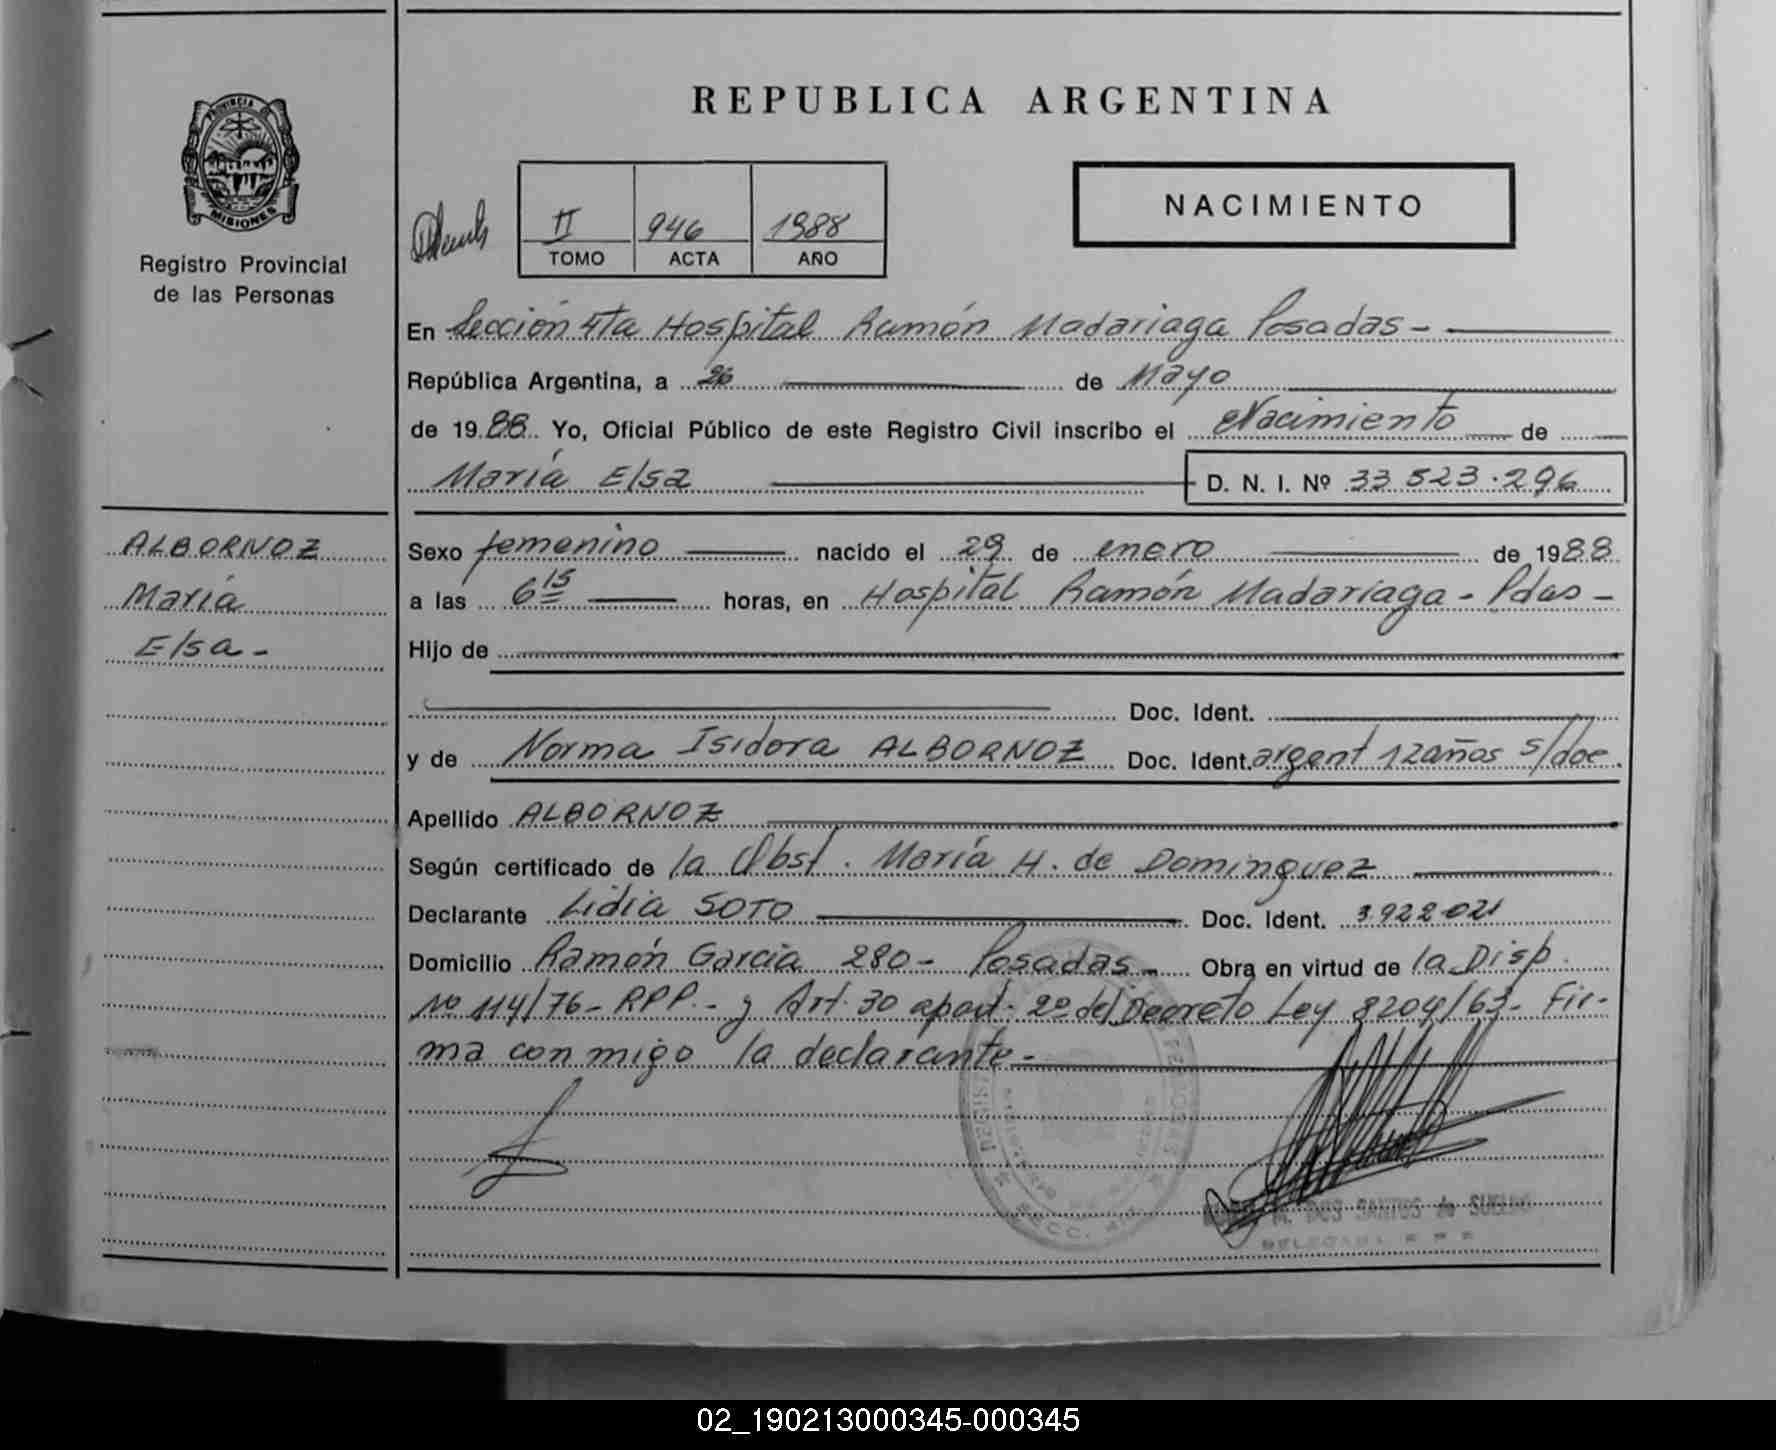 REPUBLICA ARGENTINA
PROVINCIA
MISIONES
Registro Provincial
de las Personas
II 946 1988
TOMO ACTA AÑO
NACIMIENTO
En Sección 4ta Hospital Ramón Madariaga Posadas -
República Argentina, a 26 de Mayo
de 1988. Yo, Oficial Público de este Registro Civil inscribo el Nacimiento de
María Elsa D. N. I. Nº 33.523.296
ALBORNOZ
María
Elsa -
Sexo femenino nacido el 29 de enero de 1988
a las 6 15 horas, en Hospital Ramón Madariaga - Pdas -
Hijo de
Doc. Ident.
y de Norma Isidora ALBORNOZ Doc. Ident. argent 12 años s/doc
Apellido ALBORNOZ
Según certificado de la Obst. María H. de Dominguez
Declarante Lidia SOTO Doc. Ident. 3.922.021
Domicilio Ramón Garcia 280 - Posadas - Obra en virtud de la Disp.
Nº 114/76 - RPP. - y Art. 30 apart. 2º del Decreto Ley 8204/63 - Fir-
ma conmigo la declarante -
SECC. 4ta
M. DOS SANTOS de
02_190213000345-000345